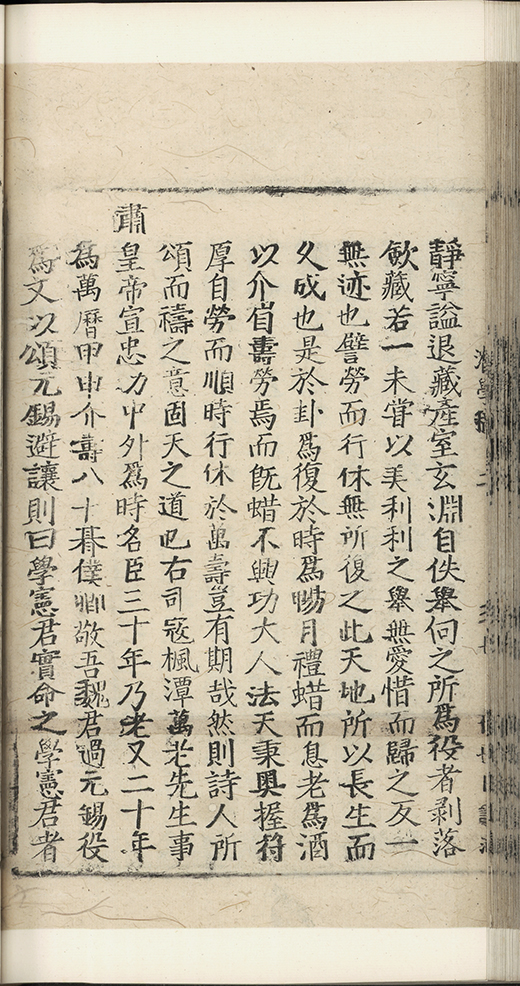 靜寧謐退藏產室玄淵自佚舉向之所爲役者剥落
歛藏若一未甞以美利利之舉無愛惜而歸之反一
無迹也譬勞而行休無所復之此天地所以長生而
久成也是於卦爲復於時爲暢月禮蜡而息老爲酒
以介眉壽勞焉而旣蜡不興功大人法天秉輿握符
厚自勞而順時行休於萬壽豈有期哉然則詩人所
頌而禱之意固天之道也右司寇楓潭萬老先生事
肅
皇帝宣忠力中外爲時名臣三十年乃老又二十年
為萬曆甲申介壽八十朞僕卿敬吾魏君過元錫役
爲文以頌元錫避讓則曰學憲君實命之學憲君者